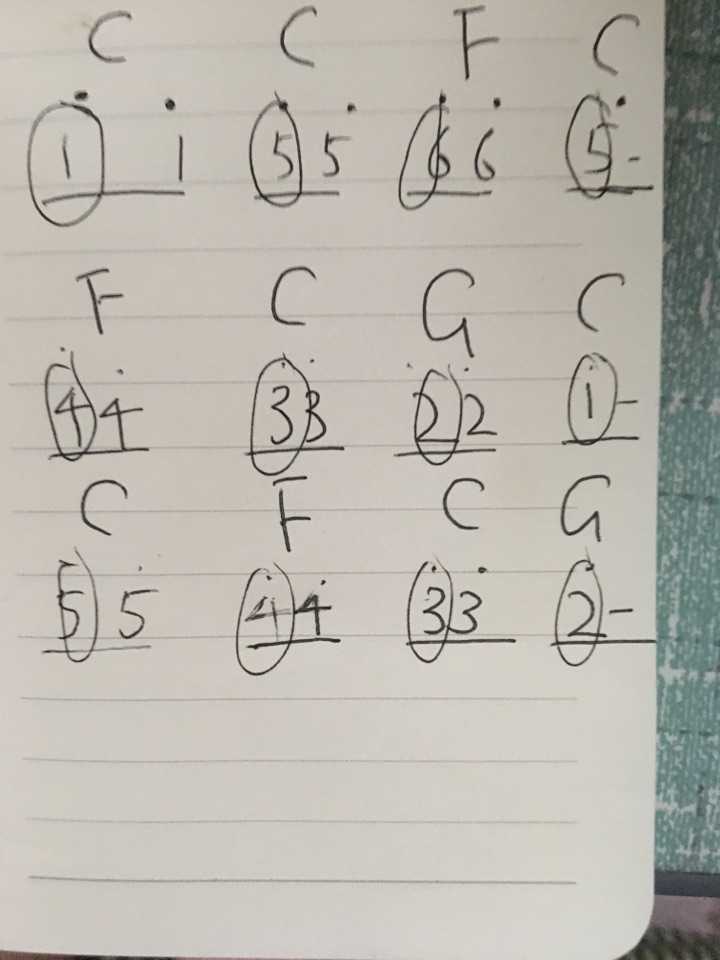 C C F C
1 1 5 5 6 6 5 -
F C G C
4 4 3 3 2 2 1 -
C F C G
5 5 4 4 3 3 2 -